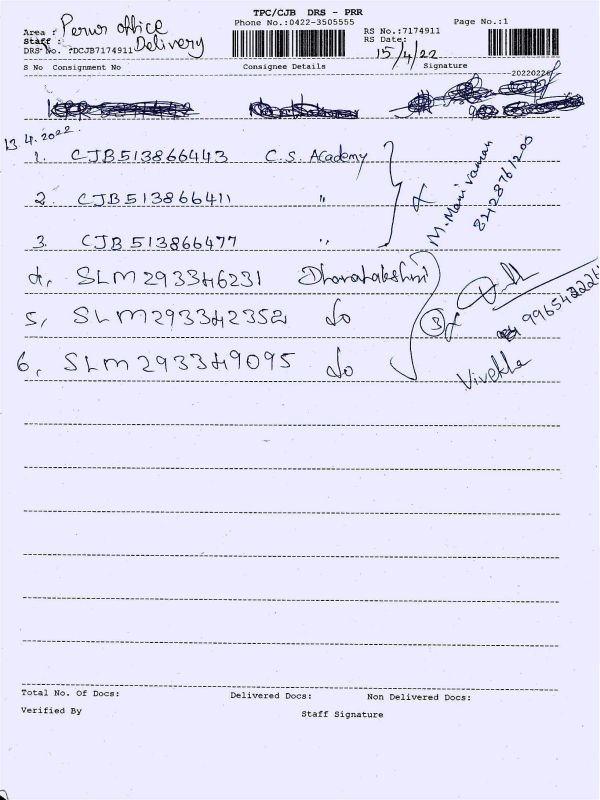 TPC/CJB DRS - PRR
Phone No.:0422-3505555
Page No.:1
Area : Perur office
Staff : Delivery
DRS No. :DCJB7174911
RS No.:7174911
RS Date:
15/4/22
S No Consignment No Consignee Details Signature
20220226
13.4.2022
1. CJB513866443 C.S. Academy
M. Manivannan
8428761200
2. CJB513866411 "
3. CJB513866477 "
4. SLM293346231
5, SLM293342352 do
3
6, SLM293349095 do
Vivekha
Total No. Of Docs: Delivered Docs: Non Delivered Docs:
Verified By Staff Signature